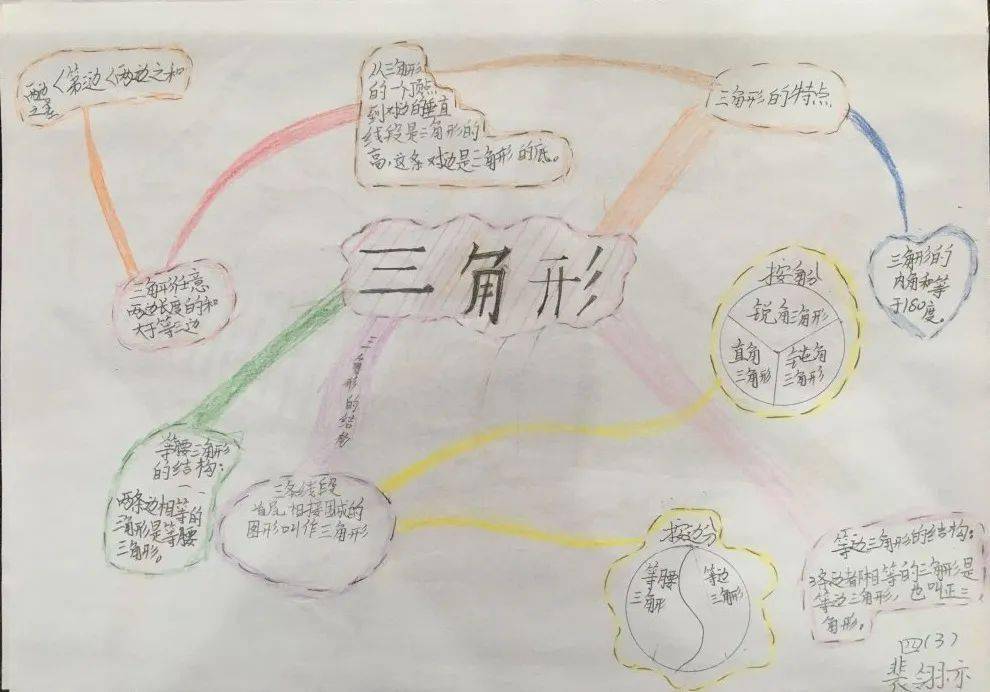 两边之差<第三边<两边之和
从三角形
的一个顶点
到对边的垂直
线段是三角形的
高，这条对边是三角形的底。
三角形的特点
三角形
三角形任意
两边长度的和
大于第三边
三角形的
内角和等
于180度。
按角分
锐角三角形
直角
三角形
钝角
三角形
三角形的结构
等腰三角形
的结构：
两条边相等的
三角形是等腰
三角形。
三条线段
首尾相接围成的
图形叫作三角形
按边分
等腰
三角形
等边
三角形
等边三角形的结构：
3条边都相等的三角形是
等边三角形，也叫正三
角形。
四(3)
裴翎亦